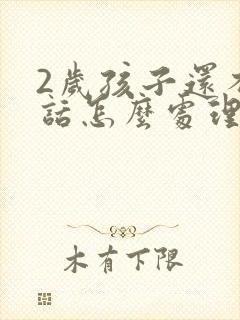 2歲孩子還不
話怎麼處理
木有下限